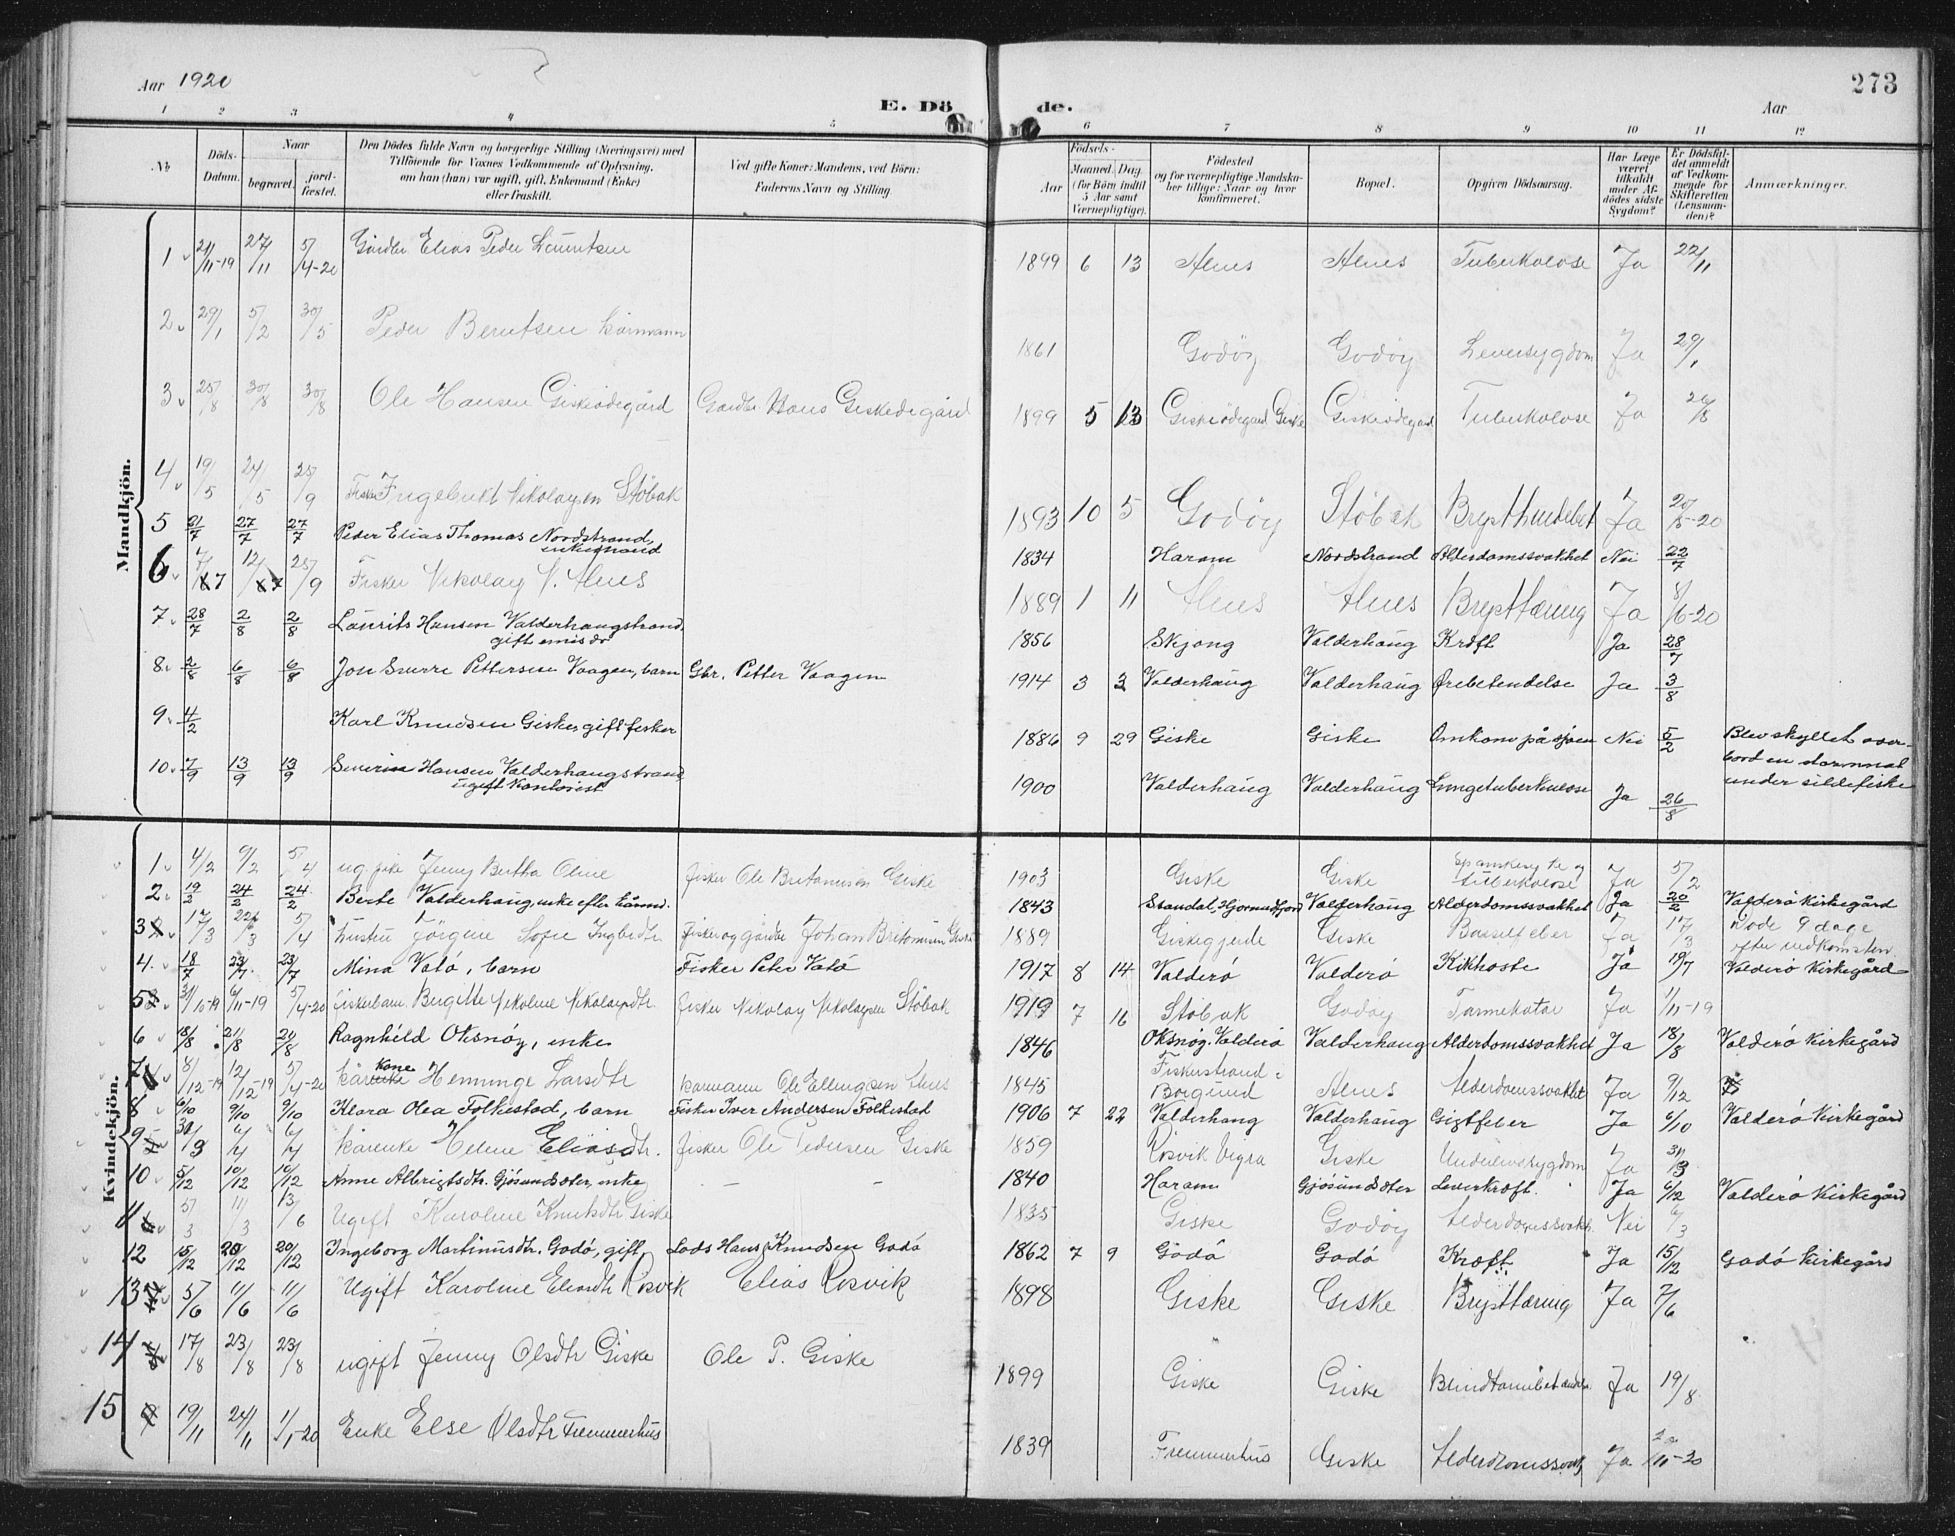 Aar 1920
E. Dö de.
Aar
273
1 2 3 4 5 6 7 8 9 10 11 12
No
Döds-Datum.
Naar
begravet. jord-fæstet.
Den Dödes fulde Navn og borgerlige Stilling (Næringsvei) med
Tilföiende for Voxnes Vedkommende af Oplysning,
om han (hun) var ugift, gift, Enkemand (Enke)
eller fraskilt.
Ved gifte Koner: Mandens, ved Börn:
Faderens Navn og Stilling.
Födsels-
Aar
Maaned. Dag.
(for Börn indtil
5 Aar samt
Værnepligtige).
Födested
og for værnepligtige Mandska-
ber tillige: Naar og hvor
konfirmeret.
Bopæl.
Opgiven Dödsaarsag.
Har Læge
været
tilkaldt
under Af-
dödes sidste
Sygdom?
Er Dödsfal-
det anmeldt
af Vedkom-
mende for
Skifteretten
(Lensman-
den)?
Anmærkninger.
Mandkjön.
1 21/11-19 27/11 5/4-20 Gårdbr Elias Peder 1899 6 13 Alnes Alnes Tuberkolose Ja 22/11
2 29/1 5/2 30/5 Peder Berntsen kårmann 1861 Godöy Godöy Leversygdom Ja 29/1
3 25/8 30/8 30/8 Ole Hansen Giskeödegård Gardbr Hans Giskedegård 1899 5 13 Giskeödegard Giske Giskeödegard Tuberkolose Ja 26/8
4 19/5 24/5 25/9 Fisker Ingebrikt Nikolaysen Stöbak 1893 10 5 Godöy Stöbak Brysthindebet Ja 20/5-20
5 21/7 27/7 27/7 Peder Elias Thomas Nordstrand,
enkemand 1834 Haram Nordstrand Alderdomssvakhet Nei 22/7
6 7/7 12/7 25/9 Fisker Nikolay J. Alnes 1889 1 11 Alnes Alnes Brysttæring Ja 8/6-20
7 28/7 2/8 2/8 Laurits Hansen Valderhaugstrand,
gift 1856 Skjong Valderhaug Kræft Ja 28/7
8 2/8 6/8 6/8 Jon Snorre Pettersen Vaagen, barn Gbr. Petter Vaagen 1914 3 3 Valderhaug Valderhaug Ørebetendelse Ja 3/8
9 4/2 Karl Knudsen Giske, gift fisker 1886 9 29 Giske Giske Omkom på sjøen Nei 5/2 Blev skyllet over-
bord en stormnat
under sildefiske
10 7/9 13/9 13/9 Severin Hansen Valderhaugstrand
ugift Kontorist 1900 Valderhaug Valderhaug Lungetuberkulose Ja 26/8
Kvindekjön.
1 4/2 9/2 5/4 ug. pike Jenny Bertha Oline fisker Ole Giske 1903 Giske Giske Spanskesyke og
tuberkolose Ja 5/2
2 19/2 24/2 24/2 Berte Valderhaug, enke efter 1843 Standal, Hjorundfjord Valderhaug Alderdomssvakhet Ja 20/2 Valderö Kirkegård
3 17/3 22/3 5/4 hustru Jörgine Sofie Ingbrdtr fisker og gårdbr Johan Giske 1889 Giskegjerde Giske Barselfeber Ja 17/3 Döde 9 dage
efter nedkomsten
4 18/7 23/7 23/7 Mina Vatö, barn Fisker Peter Vatö 1917 8 14 Valderö Valderö Kikhoste Ja 19/7 Valderö Kirkegård
5 31/10-19 6/11-19 5/4-20 fiskerbarn Birgitte Nikoline Nikolaysdtr. fisker Nikolay Nikolaysen Stöbak 1919 7 16 Stöbak Godöy Tarmekatar Ja 1/11-19
6 18/8 21/8 20/8 Ragnhild Oksnöy, enke 1846 Oksnöy, Valderö Valderhaug Alderdomssvakhet Ja 18/8 Valderö Kirkegård
7 8/12-19 12/12-19 5/4-20 kårkone Hemminge Larsdtr kårmann Ole Ellingsen Alnes 1845 Fiskerstrand i
Borgund Alnes Alderdomssvakhet Ja 9/12
8 6/10 9/10 9/10 Klara Olea Folkestad, barn Fisker Iver Andersen Folkestad 1906 7 22 Valderhaug Valderhaug Gigtfeber Ja 6/10 Valderö Kirkegård
9 30/3 6/4 6/4 kårenke Helene Eliasdtr. fisker Ole Pedersen Giske 1859 Rösvik Vigra Giske Underlivssygdom Ja 31/3
10 5/12 10/12 10/12 Anne Albrigtsdtr. Gjösundsæter, enke — — 1840 Haram Gjösundsæter Leverkræft. Ja 6/12 Valderö Kirkegård
11 5/3 11/3 13/6 Ugift Karoline Knutsdtr Giske 1835 Giske Godöy Alderdomssvakh. Nei 6/3
12 15/12 20/12 20/12 Ingeborg Martinusdtr. Godö, gift, Lods Hans Knudsen Godö 1862 7 9 Godö Godö Kræft. Ja 15/12 Godö Kirkegård
13 5/6 11/6 11/6 Ugift Karoline Eliasdtr Rösvik Elias Rösvik 1898 Giske Giske Brysttæring Ja 7/6
14 17/8 23/8 23/8 ugift Jenny Olsdtr Giske Ole P. Giske 1899 Giske Giske Blindtarmbetændelse Ja 19/8
15 19/11 24/11 1/1-20 Enke Else Olsdtr Fremmerhus 1839 Fremmerhus Giske Alderdomssvakh Ja 20/11-20